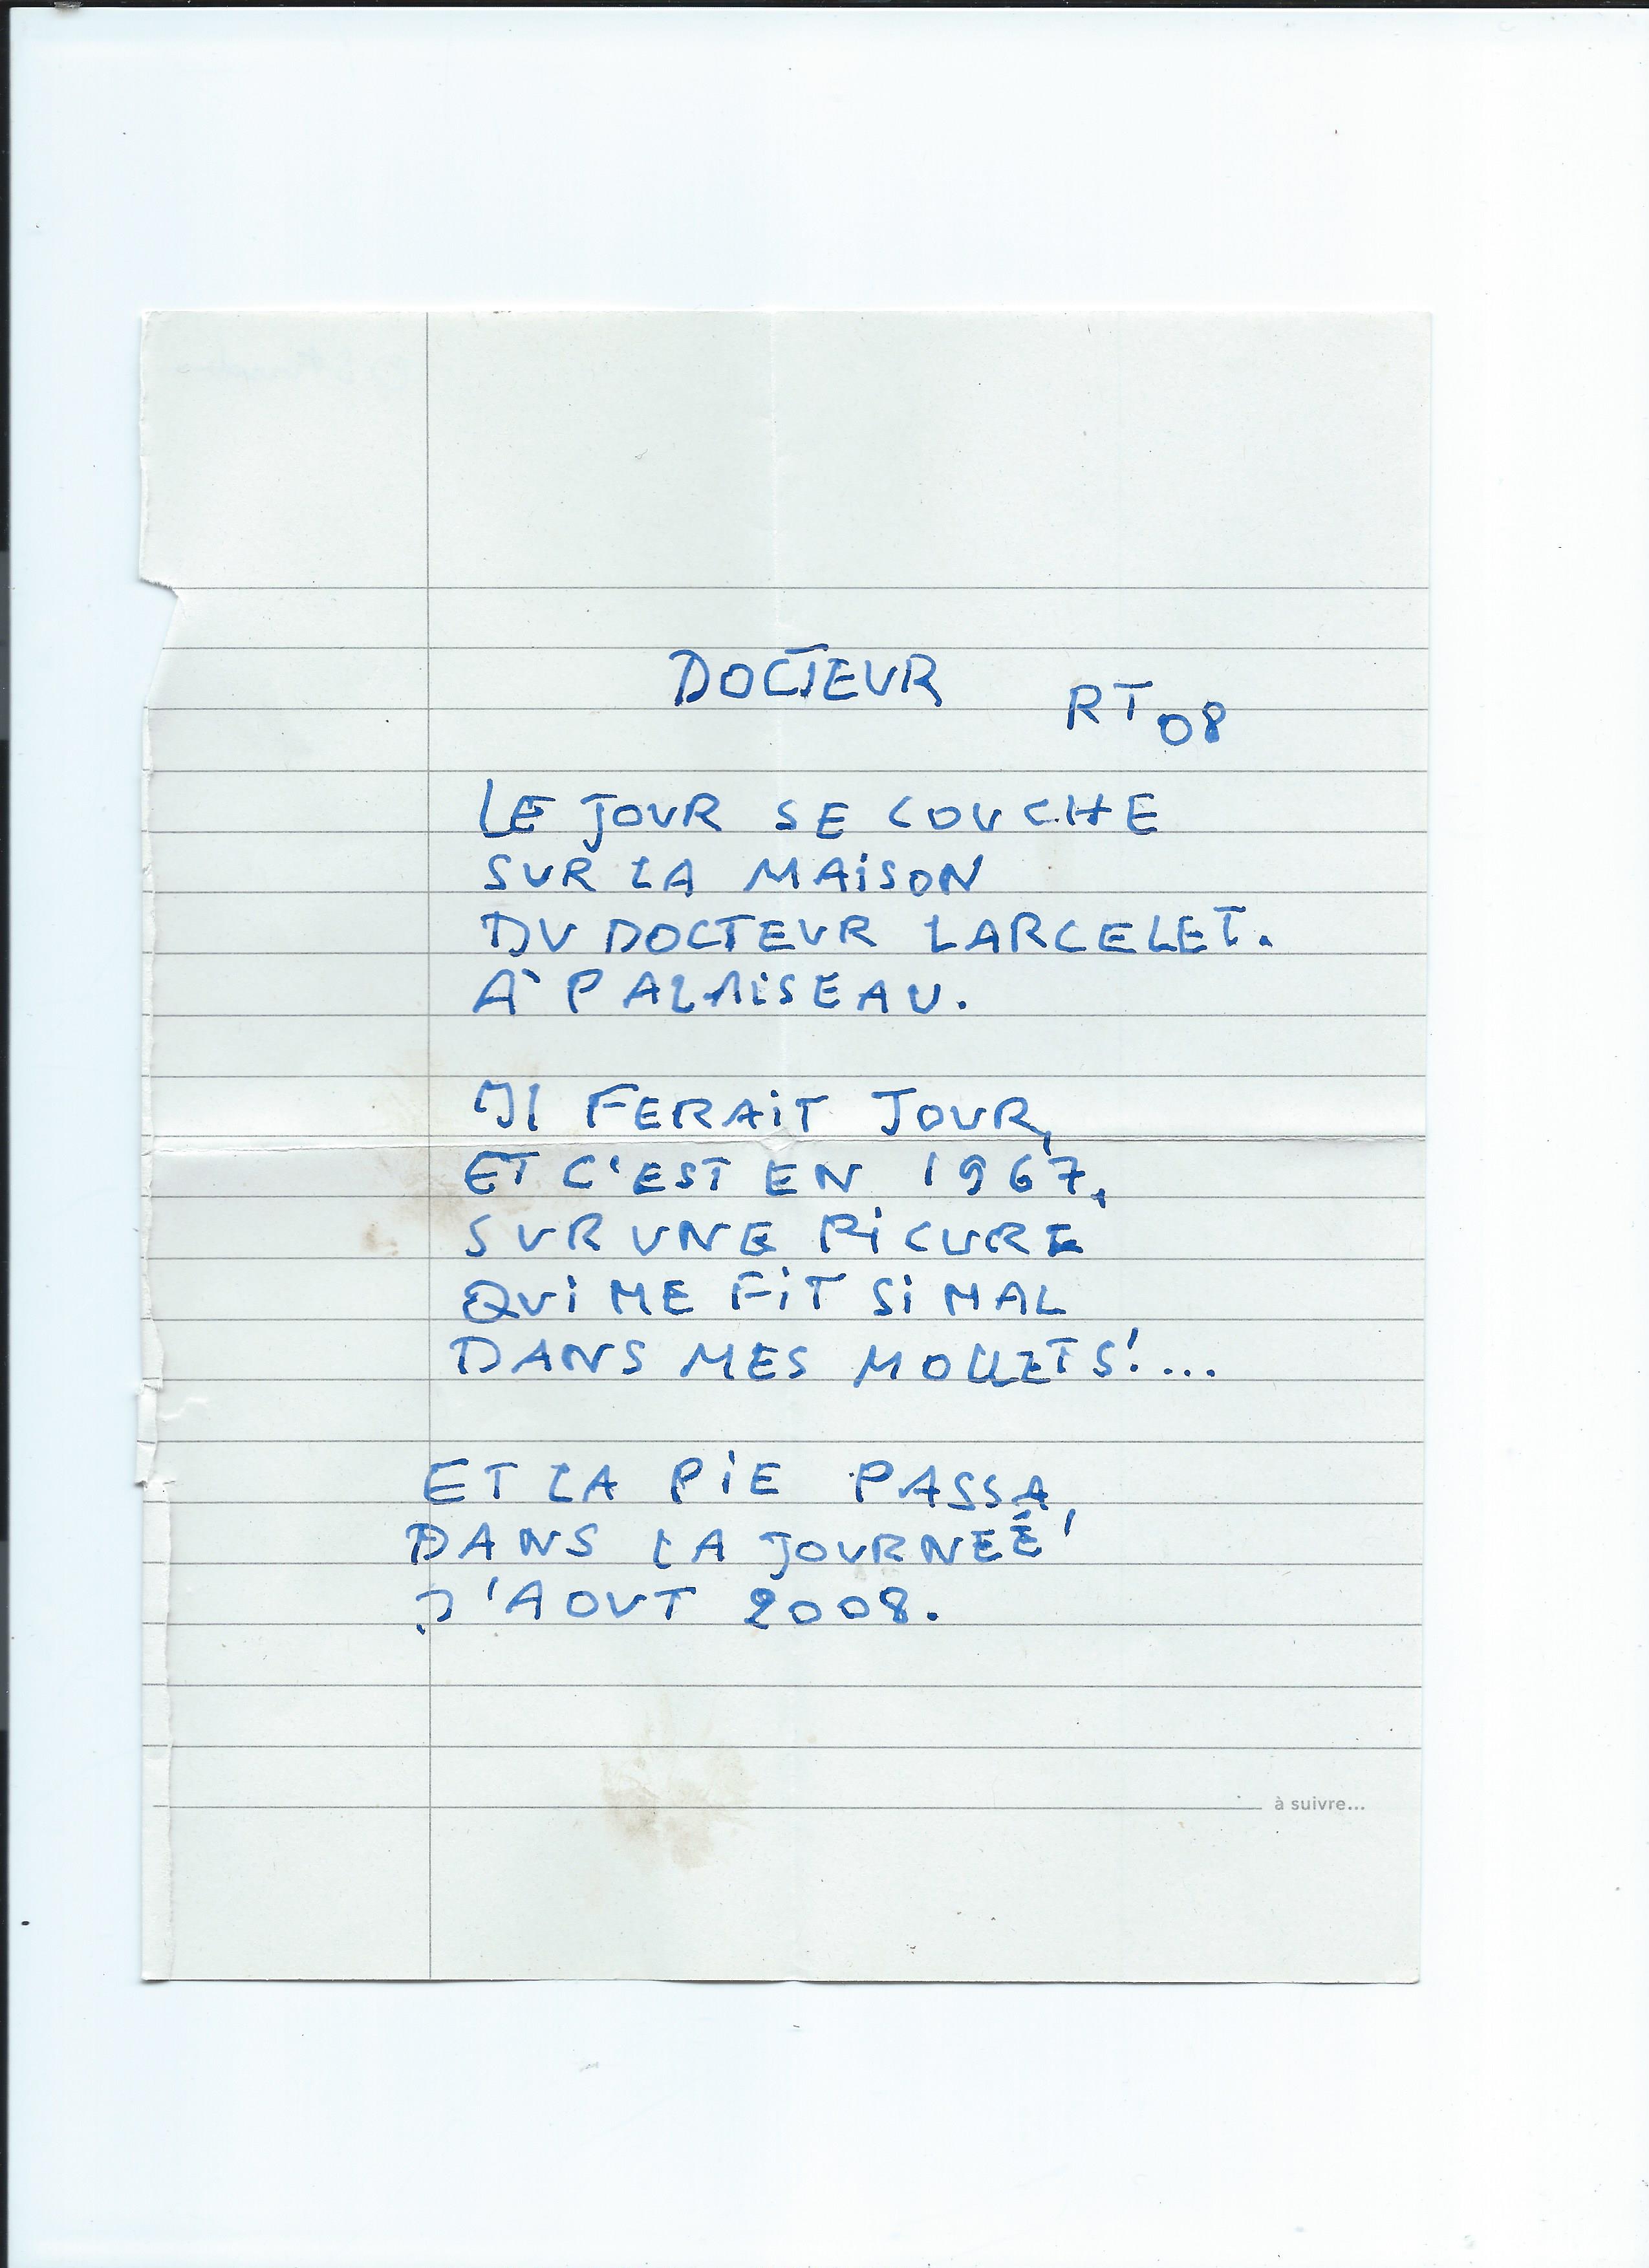 DOCTEUR
RT 08
LE JOUR SE COUCHE
SUR LA MAISON
DU DOCTEUR LARCELET.
À PALAISEAU.
Il FERAiT JOUR,
ET C'EST EN 1967,
SUR UNE PiCURE
QUi ME FiT Si MAL
DANS MES MOLLETS!...
ET LA PiE PASSA,
DANS LA JOURNEÉ
D'AOUT 2008.
à suivre...